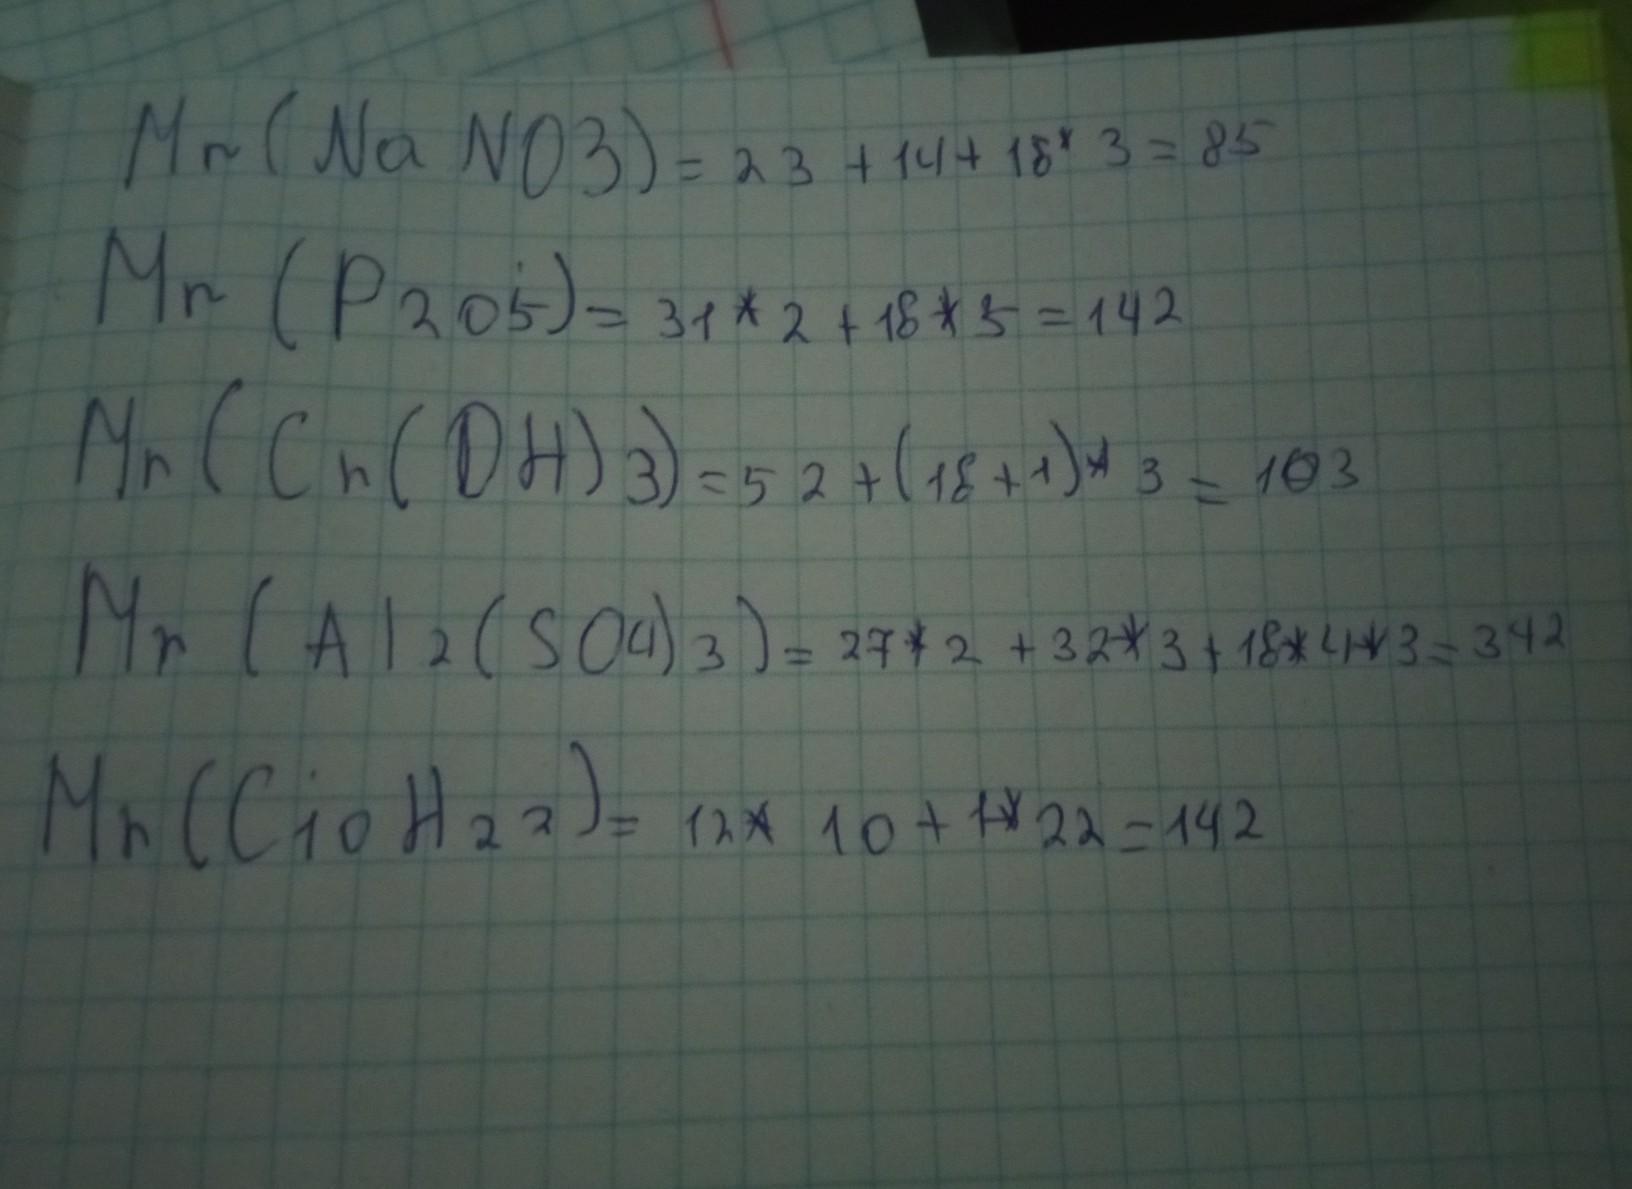 Mr(NaNO3)=23+14+18*3=85
Mr(P2O5)=31*2+18*5=142
Mr(Cr(OH)3)=52+(18+1)*3=103
Mr(Al2(SO4)3)=27*2+32*3+18*4*3=342
Mr(C10H22)=12*10+1*22=142